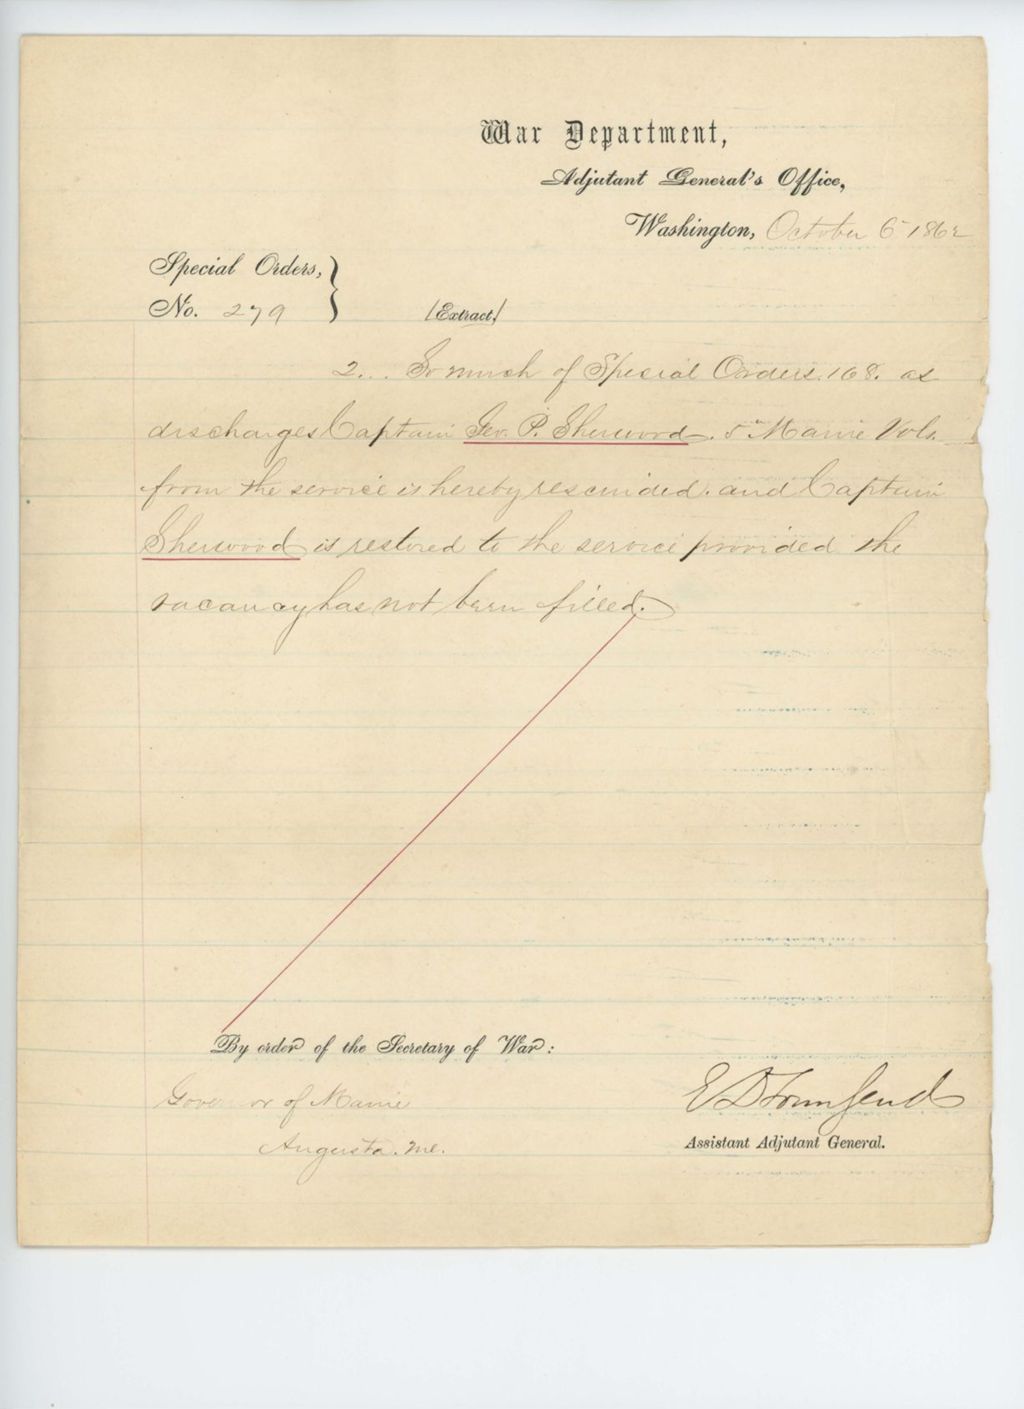 War Department,
Adjutant General's Office,
Washington, October 6 1862
Special Orders,
No. 279
(Extract)
2... So much of Special Orders. 168. as
discharges Captain Geo. P. Sherwood. 5th Maine Vols.
from the service is hereby rescinded. and Captain
Sherwood is restored to the service provided the
vacancy has not been filled.
By order of the Secretary of War:
Governor of Maine
Augusta. Me.
E D Townsend
Assistant Adjutant General.